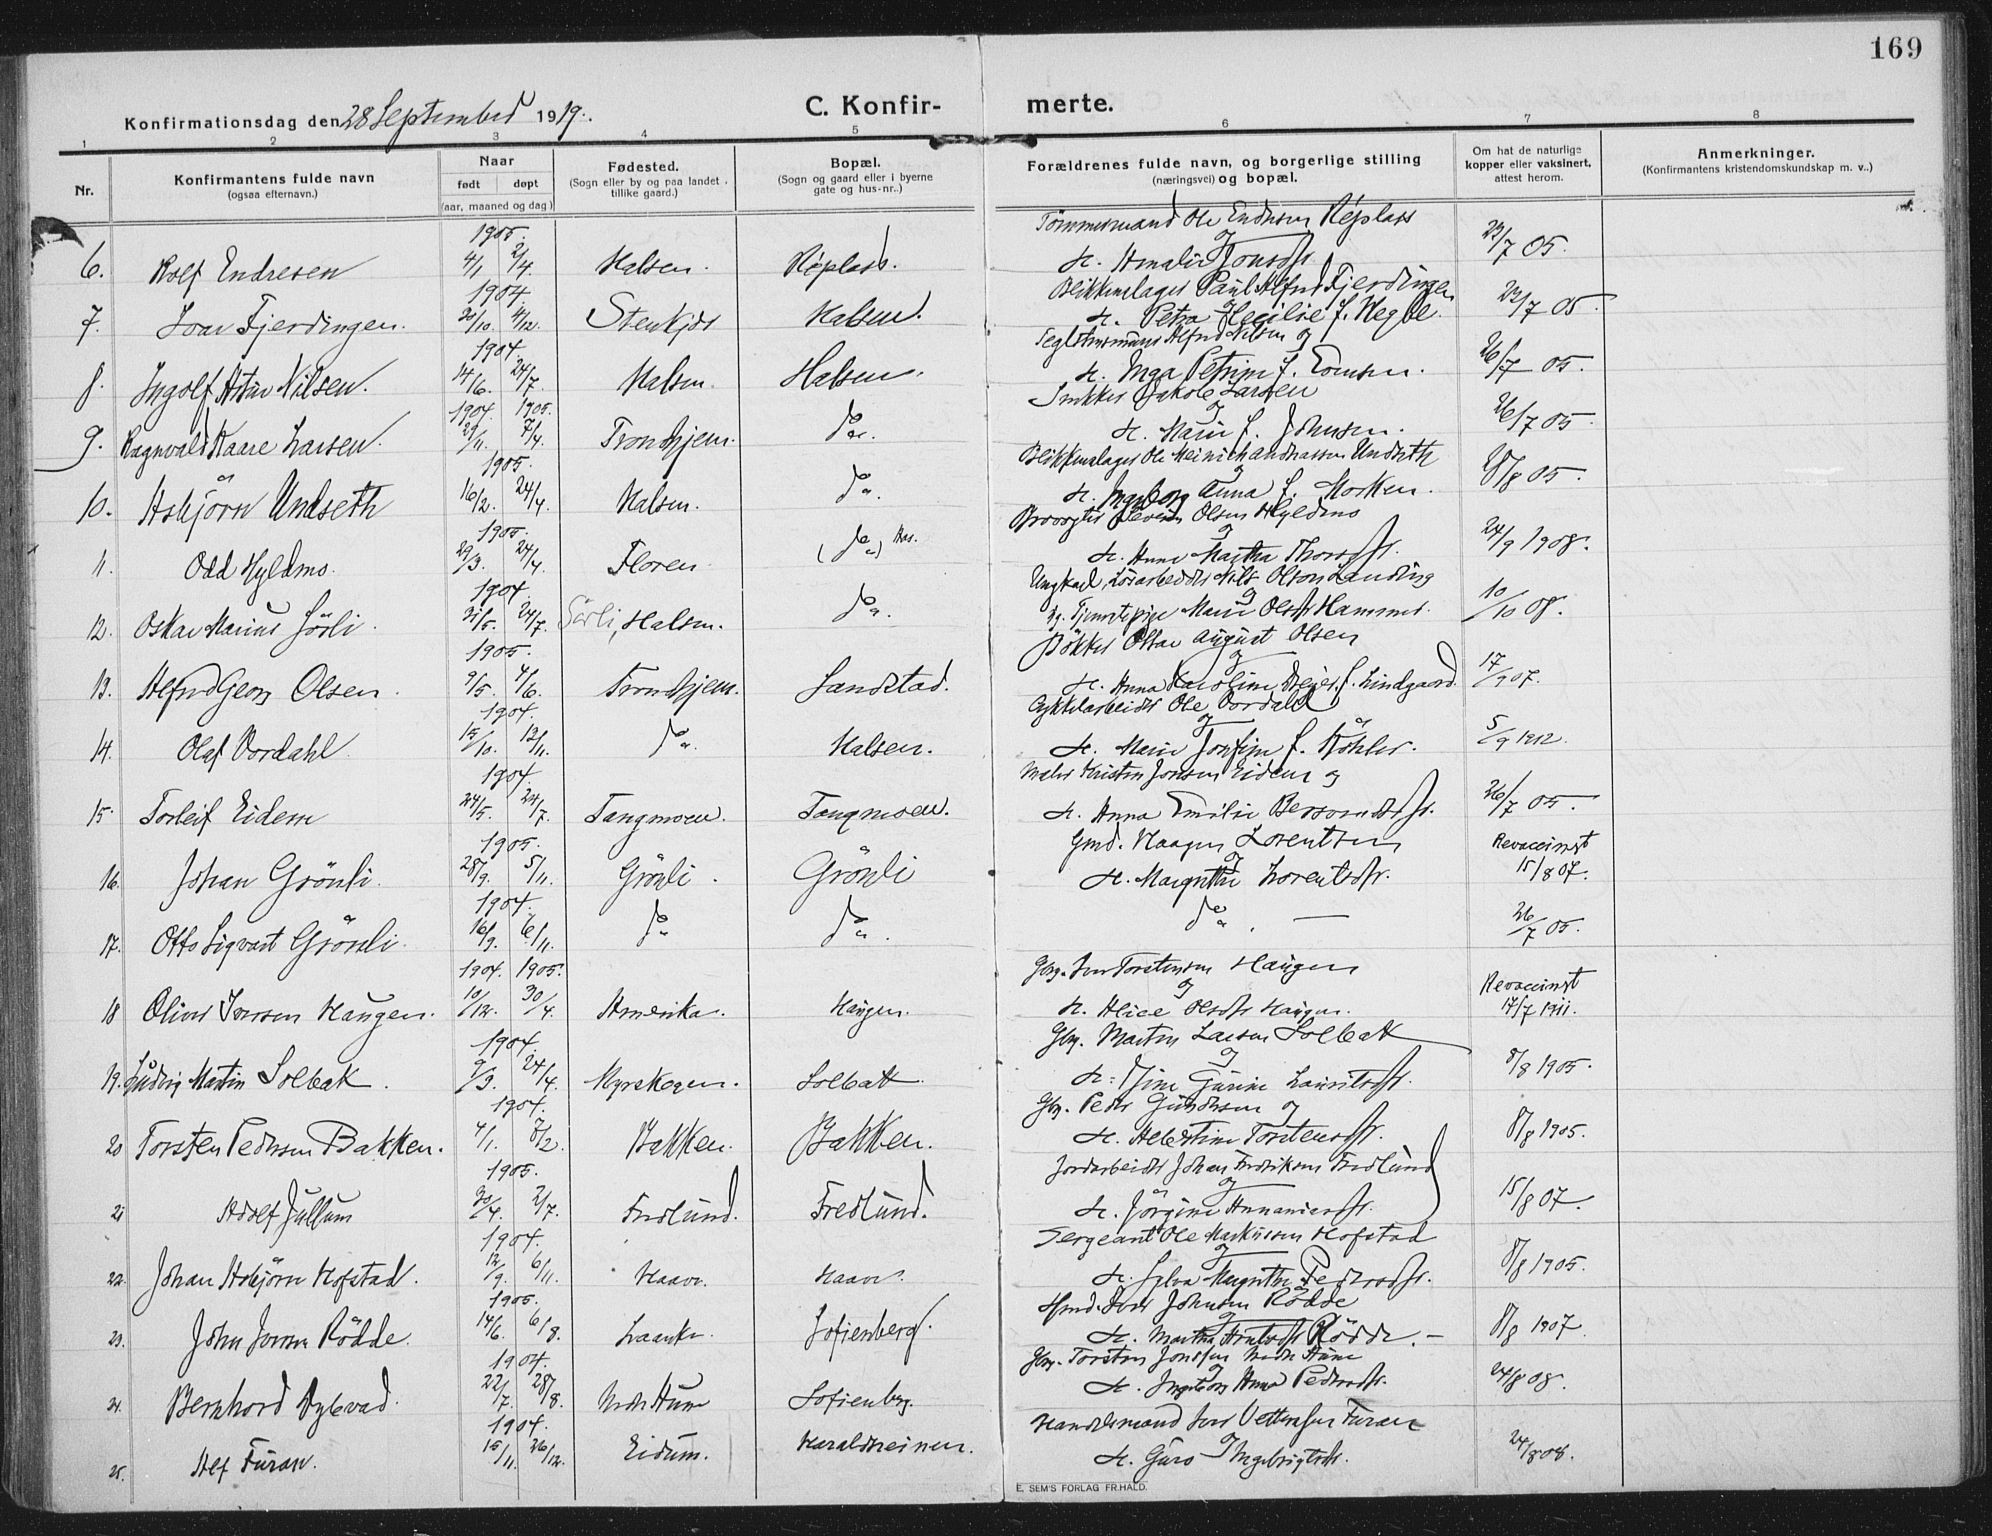 169
Konfirmationsdag den 28 September 1919.
C. Konfirmerte.
1 2 3 4 5 6 7 8
Nr. Konfirmantens fulde navn (ogsaa efternavn.) Naar født døpt (aar, maaned og dag) Fødested. (Sogn eller by og paa landet tillike gaard.) Bopæl. (Sogn og gaard eller i byerne gate og hus-nr..) Forældrenes fulde navn, og borgerlige stilling (næringsvei) og bopæl. Om hat de naturlige kopper eller vaksinert, attest herom. Anmerkninger. (Konfirmantens kristendomskundskap m. v..)
1905. Tømmermand Ole Endresen Røplass
6. Rolf Endresen 4/1 2/4. Halsen. Røplass. og H. Amalie Jonsdtr 23/7 05.
1904. Blikkenslager Paul Alfred Fjerdingen
7. Ivar Fjerdingen. 20/10. 4/12. Stenkjær Halsen. H. Petra Cecilie f. Hegge. 23/7 05
1904. Alfred Nilsen og
8. Ingolf Artur Nilsen. 14/6. 24/7. Halsen. Halsen. H. Inga Petrine f. Tomsen. 26/7 05.
1904. 1905. Snikker Jakob Larsen
9. Ragnvald Kaare Larsen. 29/11. 7/4. Trondhjem. do. og H. Marie f. Johnsen. 26/7 05.
1905. Blikkenslager Ole Meinich Andreassen Undseth
10. Asbjörn Undseth 16/2. 24/4. Halsen. do. H. Ingeborg Anna f. Morken. 8/8 05.
1905. Olsen Hyldmo
11. Odd Hyldmo. 29/3. 24/4. Floren (do) Has. og H. Anne Martha Thorsdtr. 24/9 1908.
1904. Ungkarl, Løsarbeider Nils Olsen Landing
12. Oskar Marius Sörli. 31/5. 24/7. Sörli, Halsen. do. og Tjenestepige Marie Olsdtr Hammer. 10/10 08.
1905. Bökker Oskar August Olsen
13. Alfred Georg Olsen. 9/5. 4/6. Trondhjem. Sandstad. og H. Anna Karoline f. Lindgaard. 17/9 07.
1904. Cykkelarbeider Ole Vordahl
14. Olaf Vordahl 15/10. 13/11. do. Halsen. og H. Marie Josefine f. Köhler. 5/9 1912.
1904. Maler Kristen Jonsen Eidem og
15. Torleif Eidem 24/5. 24/7. Tangmoen. Tangmoen. H. Anna Emilie 26/7 05.
1905. Gmd. Haagen Lorentsen
16. Johan Grönli. 28/9. 5/11. Grönli. Grönli og H. Margrethe Lorentsdtr. Revaccineret 15/8 07.
1904.
17. Otto Sigvart Grönli. 16/9. 6/11. do do. do. — 26/7 05.
1904. 1905. Gbr. Iver Torstensen Haugen
18 Oliver Iversen Haugen. 10/12. 30/4. Amerika. Haugen. og H. Alice Olsdtr Haugen. Revaccineret 17/7 1911.
1904. Gbr. Martin Larsen Solbak
19. Ludvig Martin Solbak. 9/3. 24/4. Myrskogen. Solbak. og H. Gurine Lauritsdtr. 8/8 1905.
1904. Gbr. Peder Gundersen og
20 Torsten Pedersen Bakken. 4/1. 7/2. Bakken. Bakken. H. Albertine Torstensdtr. 8/8 1905.
1905. Jordarbeider Johan Fredriksen Fredlund
21 Adolf Jullum 30/4. 2/7. Fredlund. Fredlund. og H. Jörgine Annaniasdtr. 15/8 07.
1904. Sergeant Ole Markussen Hofstad
22. Johan Asbjörn Hofstad. 12/9. 6/11. Haave. Haave. og H. Sylva Margrethe Pedersdtr. 8/8 1905.
1905. Iver Johnsen Rödde
23. John Iversen Rödde. 14/6. 6/8. Laanke. Sofienberg. og H. Martha Rödde. — 8/8 1907
1904. Gbr. Torsten Jonsson Nedre Hune
24. Bernhard Dybvad. 22/7. 28/8. Nedre Hune Sofienberg. H. Ingeborg Anna Pedersdtr. 24/8 08.
1904. Handelsmand Iver Furan
25. Alf Furan. 15/11. 26/12. Eidum. Haraldreinen. og H. Guro Ingebrigtsdtr. 24/8 08.
E. SEM'S FORLAG FR.HALD.